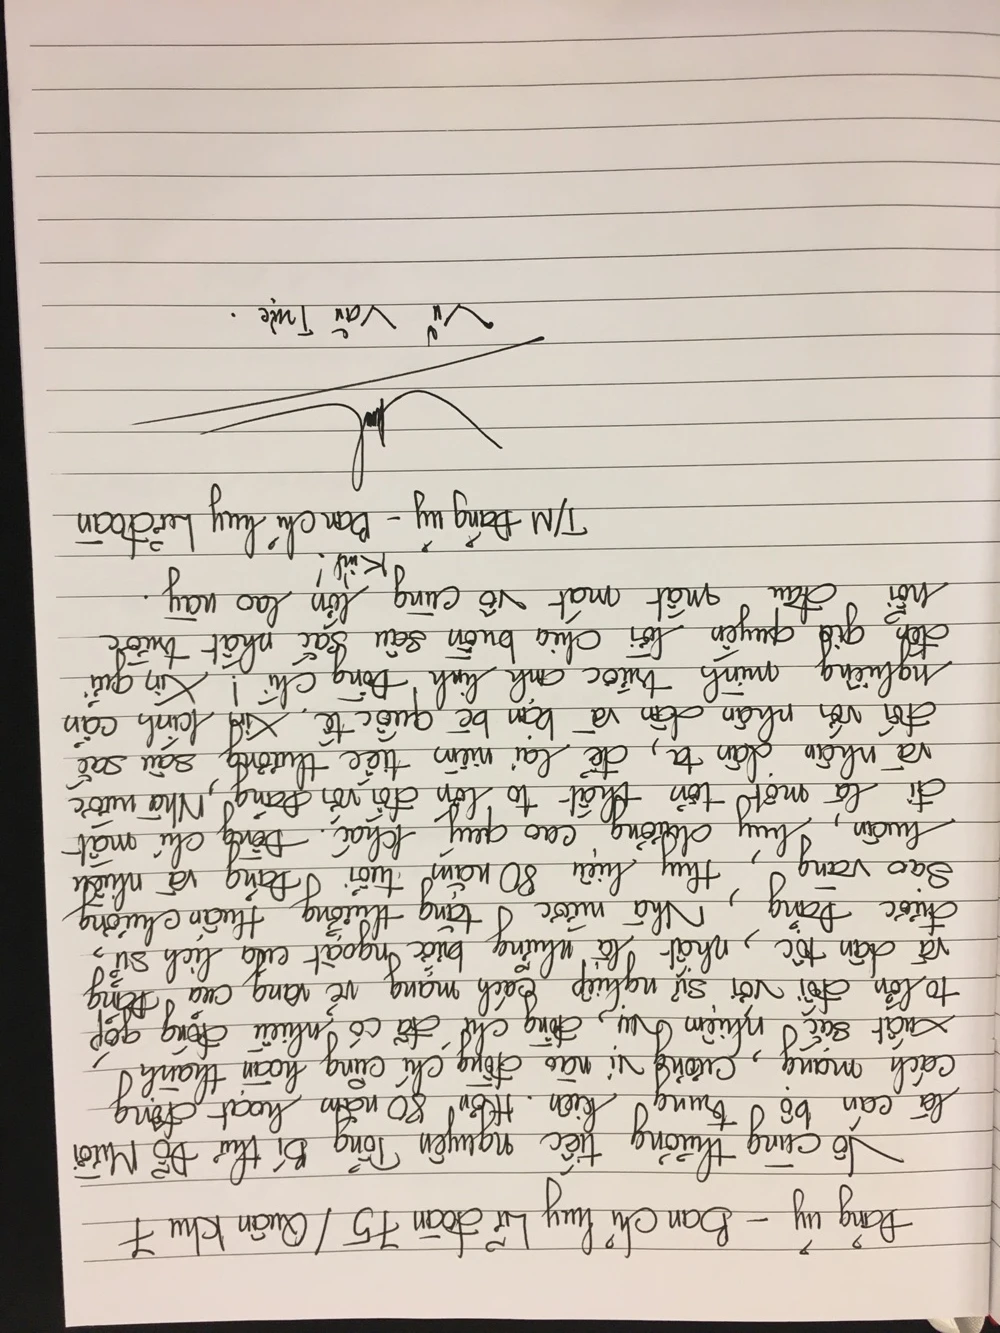 Đảng uỷ - Ban chỉ huy Lữ đoàn 75 / Quân khu 7
Vô cùng thương tiếc nguyên Tổng Bí thư Đỗ Mười
là cán bộ trung kiên. Hơn 80 năm hoạt động
cách mạng, cương vị nào đồng chí cũng hoàn thành
xuất sắc nhiệm vụ, đồng chí đã có nhiều đóng góp
to lớn đối với sự nghiệp cách mạng vẻ vang của Đảng
và dân tộc, nhất là những bước ngoặt của lịch sử,
được Đảng, Nhà nước tặng thưởng Huân chương
Sao vàng, Huy hiệu 80 năm tuổi Đảng và nhiều
huân, huy chương cao quý khác. Đồng chí mất
đi là một tổn thất to lớn đối với Đảng, Nhà nước
và nhân dân ta, để lại niềm tiếc thương sâu sắc
đối với nhân dân và bạn bè quốc tế. Xin kính cẩn
nghiêng mình trước anh linh Đồng chí! Xin gửi
đến gia quyến lời chia buồn sâu sắc nhất trước
nỗi đau mất mát vô cùng lớn lao này.
Kính!
T/M Đảng uỷ - Ban chỉ huy Lữ đoàn
Vũ Văn Trực.